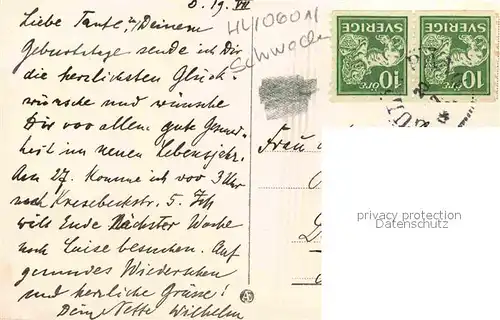 D. 19. VII
Liebe Tante, zu Deinem
Geburtstage sende ich Dir
die herzlichsten Glück-
wünsche und wünsche
Dir vor allem gute Gesund-
heit im neuen Lebensjahr.
Am 27. komme ich vor 3 Uhr
nach Kresebeckstr. 5. Ich
will Ende Nächster Woche
noch Luise besuchen. Auf
gesundes Wiedersehen
und herzliche Grüsse!
Dein Neffe Wilhelm
SVERIGE
10 ÖRE
SVERIGE
10 ÖRE
Frau
privacy protection
Datenschutz